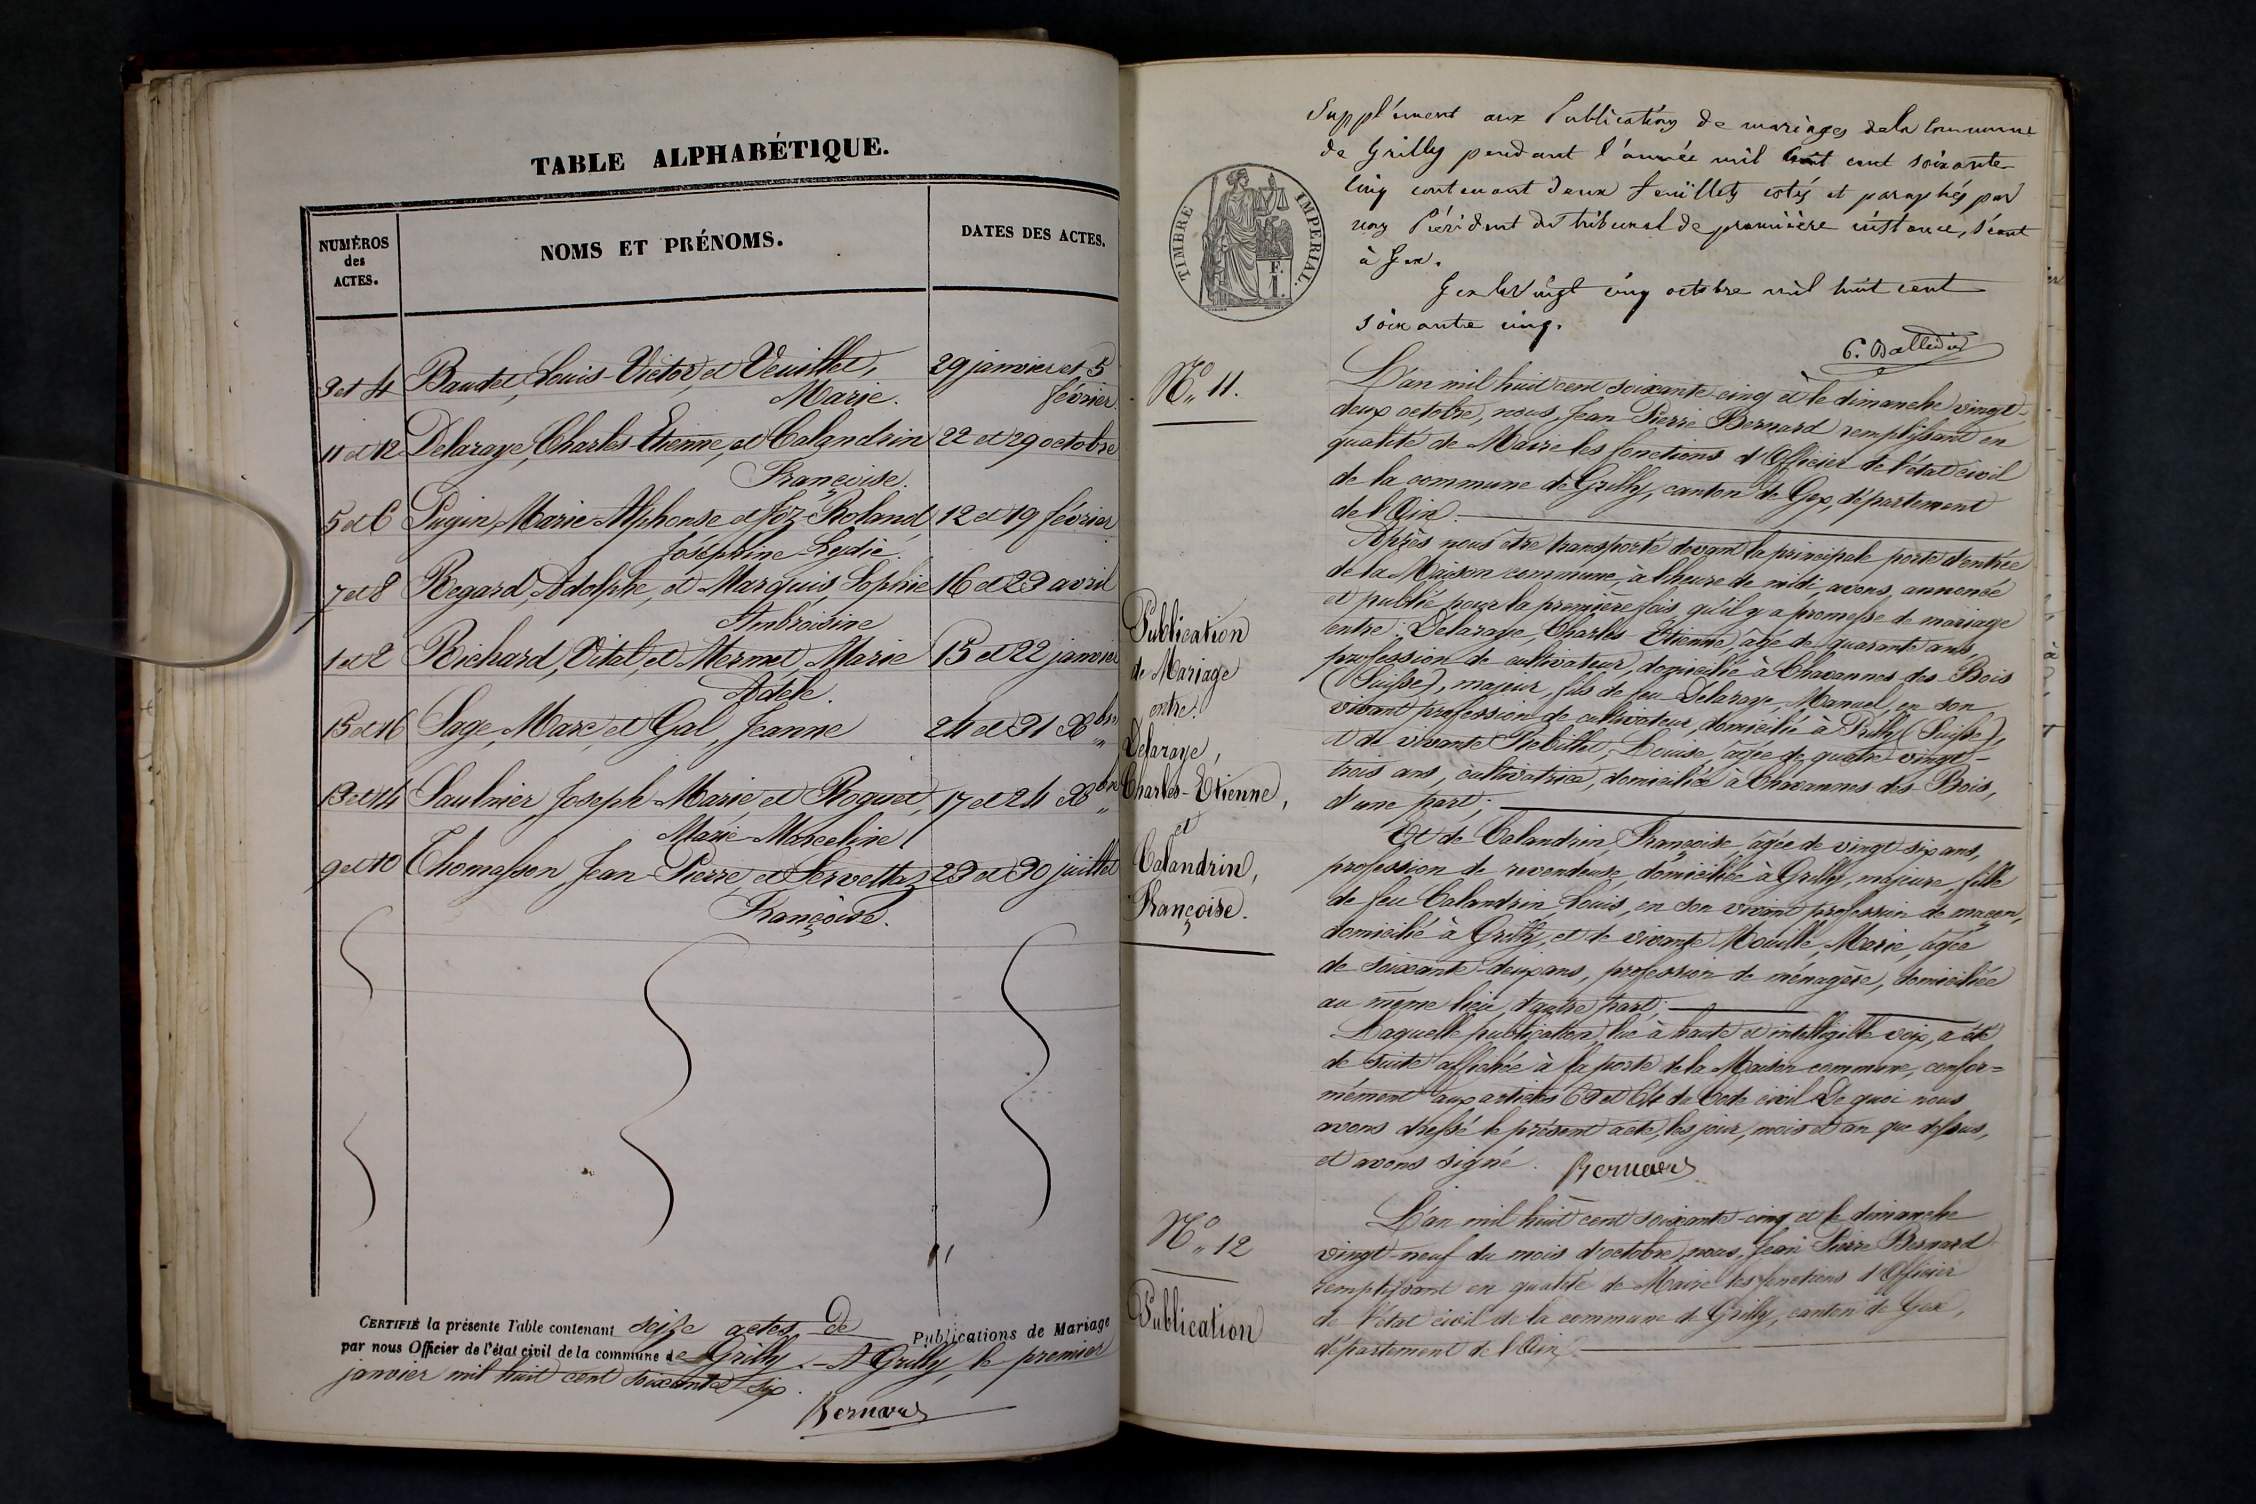 TABLE ALPHABÉTIQUE.
NUMÉROS
des
ACTES.
NOMS ET PRÉNOMS.
DATES DES ACTES.
3 et 4 Baudet, Louis-Victor, et Veuillet, 29 janvier et 5
Marie. février
11 et 12 Delaraye, Charles-Etienne, et Calandrin 22 et 29 octobre
Françoise.
5 et 6 Pugin, Marie Alphonse et Roland, 12 et 19 février
Joséphine Lydie.
7 et 8 Regard, Adolphe, et Marquis, Sophie 16 et 23 avril
Ambroisine
1 et 2 Richard, Vital, et Mermet Marie 15 et 22 janvier
Adèle.
15 et 16 Sage, Marc, et Gal, Jeanne 24 et 31 Xbre
13 et 14 Saulnier, Joseph Marie, et Roguet, 17 et 24 Xbre
Marie Marceline
9 et 10 Thomasson, Jean-Pierre, et Servettaz 23 et 30 juillet
Françoise.
CERTIFIÉ la présente Table contenant seize actes de Publications de Mariage
par nous Officier de l'état civil de la commune de Grilly. - A Grilly, le premier
janvier mil huit cent soixante six.
Bernard
Supplément aux Publications de mariages de la Commune
de Grilly pendant l'année mil huit cent soixante
cinq contenant deux feuillets cotés et paraphés par
nous Président du tribunal de première instance, séant
à Gex.
Gex le vingt cinq octobre mil huit cent
soixante cinq.
TIMBRE IMPERIAL.
F.
1.
N° 11.
Publication
de Mariage
entre
Delaraye,
Charles-Etienne,
et
Calandrin,
Françoise.
L'an mil huit cent soixante-cinq et le dimanche vingt-
deux octobre, nous, Jean Pierre Bernard remplissant en
qualité de Maire les fonctions d'Officier de l'état civil
de la commune de Grilly, canton de Gex, département
de l'Ain.
Après nous être transporté devant la principale porte d'entrée
de la Maison commune, à l'heure de midi, avons annoncé
et publié pour la première fois qu'il y a promesse de mariage
entre: Delaraye, Charles Etienne, âgé de quarante ans,
profession de cultivateur, domicilié à Chavannes des Bois
(Suisse), majeur, fils de feu Delaraye, Manuel, en son
vivant profession de cultivateur, domicilié à Prilly (Suisse),
et de vivante Louise, âgée de quatre-vingt-
trois ans, cultivatrice, domiciliée à Chavannes des Bois,
d'une part;
Et de Calandrin, Françoise, âgée de vingt-six ans,
profession de revendeuse, domiciliée à Grilly, majeure, fille
de feu Calandrin Louis, en son vivant profession de maçon,
domicilié à Grilly, et de vivante Mouille, Marie, âgée
de soixante-deux ans, profession de ménagère, domiciliée
au même lieu, d'autre part;
Laquelle publication, lue à haute et intelligible voix, a été
de suite affichée à la porte de la Maison commune, confor=
mément aux articles 63 et 64 du Code civil. De quoi nous
avons dressé le présent acte, les jour, mois et an que dessus,
et avons signé. Bernard
N° 12
Publication
L'an mil huit cent soixante-cinq et le dimanche
vingt-neuf du mois d'octobre, nous, Jean Pierre Bernard
remplissant en qualité de Maire les fonctions d'Officier
de l'état civil de la commune de Grilly, canton de Gex,
département de l'Ain.